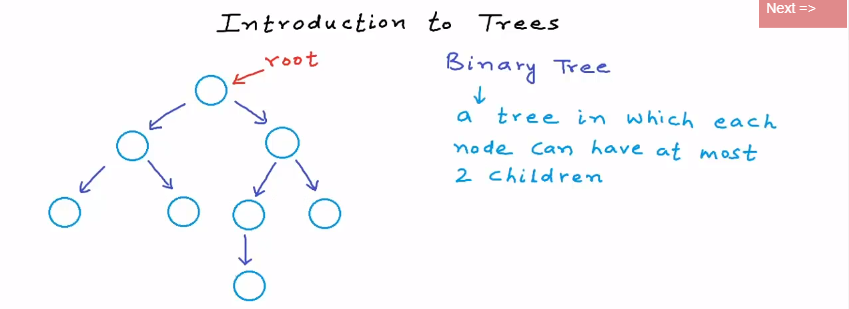 Introduction to Trees
Next =>
root
Binary Tree
a tree in which each
node can have at most
2 children